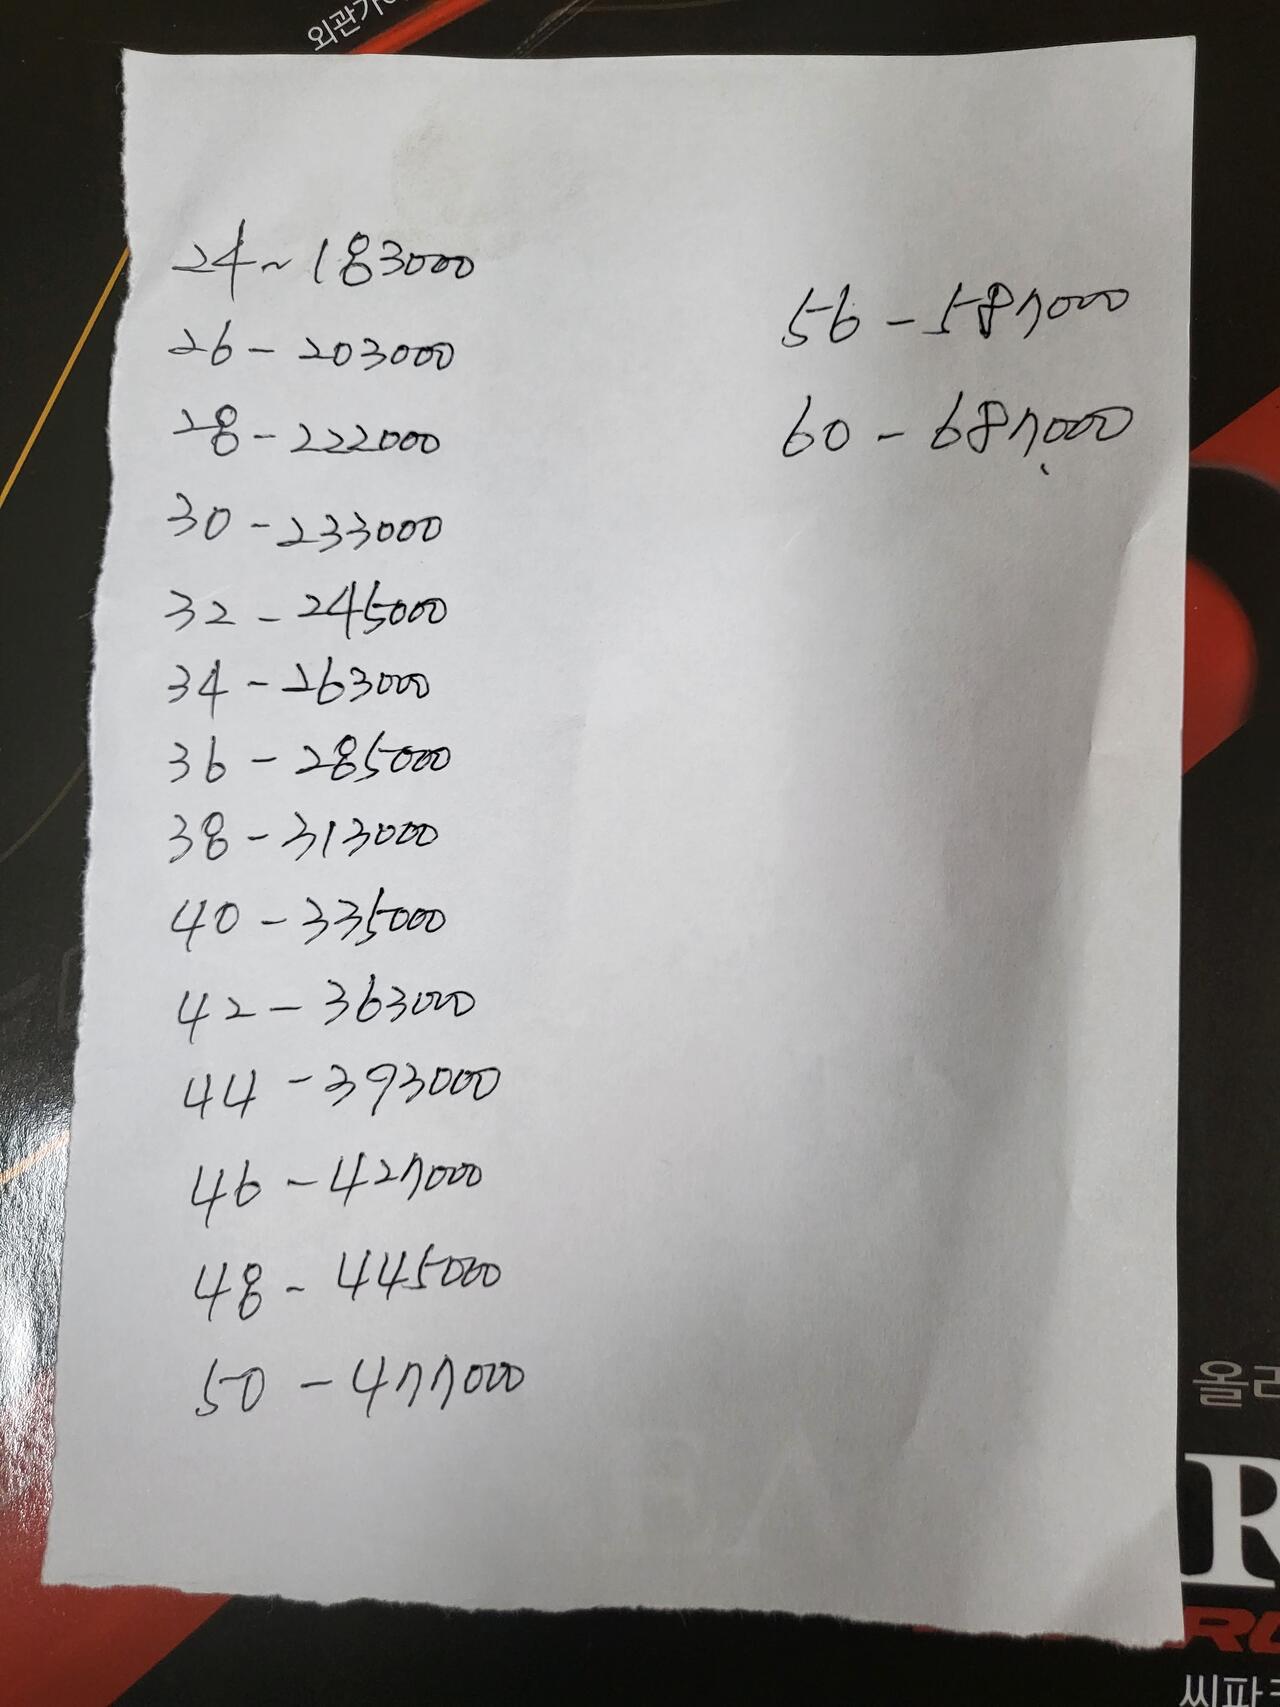 외관
24~183000
26-203000
28-222000
30-233000
32-245000
34-263000
36-285000
38-313000
40-335000
42-363000
44-393000
46-427000
48-445000
50-477000
56-587000
60-687000
R
씨파